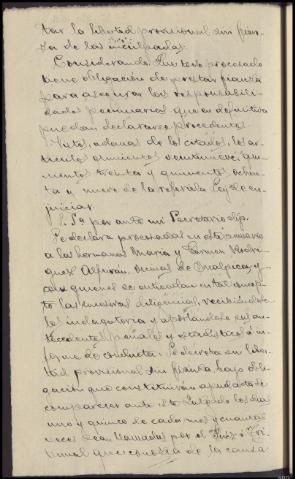 tar la libertad provisional sin fian-
za de las inculpadas.
Considerando: Que todo procesado
tiene obligación de prestar fianza
para asegurar las responsabili-
dades pecuniarias que en definitiva
puedan declararse procedentes.
Vistos, además de los citados, los ar-
tículos quinientos veintinueve, qui-
nientos treinta y quinientos ochen-
ta y nueve de la referida Ley de en-
juiciar.
S. Sª por ante mí Secretario dijo:
Se declara procesadas en este sumario
a las hermanas María y Carmen Rodrí-
guez vecinas de y
con quienes se entiendan en tal concep-
to las sucesivas diligencias, recibiéndose-
les indagatoria y aportándose sus an-
tecedentes penales y e in-
forme de conducta. Se decreta su liber-
tad provisional sin fianza, bajo obli-
gación que constituirán apud acta de
comparecer ante este Juzgado los días
uno y quince de cada mes y cuantas
veces sean llamadas por el Juez o Tri-
bunal que conozca de la causa